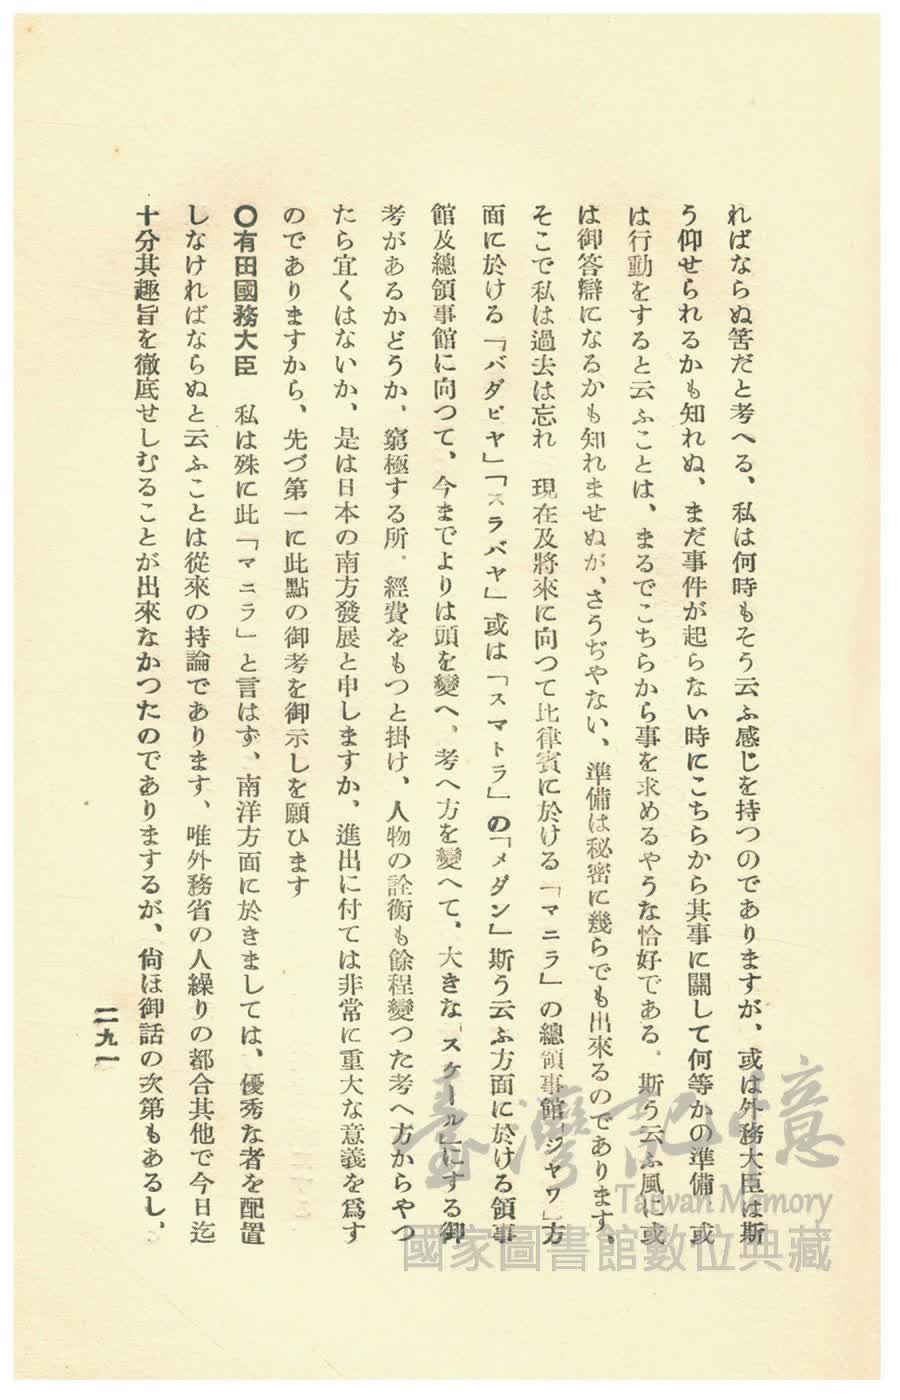 ればならぬ筈だと考へる、私は何時もそう云ふ感じを持つのでありますが、或は外務大臣は斯
う仰せられるかも知れぬ、まだ事件が起らない時にこちらから其事に關して何等かの準備 或
は行動をすると云ふことは、まるでこちらから事を求めるやうな恰好である、斯う云ふ風に或
は御答辯になるかも知れませぬが、さうぢやない、準備は秘密に幾らでも出來るのであります、
そこで私は過去は忘れ 現在及將來に向つて比律賓に於ける「マニラ」の總領事館「ジヤワ」方
面に於ける「バダビヤ」「スラバヤ」或は「スマトラ」の「メダン」斯う云ふ方面に於ける領事
館及總領事館に向つて、今までよりは頭を變へ、考へ方を變へて、大きな「スケール」にする御
考があるかどうか、窮極する所、經費をもつと掛け、人物の詮衡も餘程變つた考へ方からやつ
たら宜くはないか、是は日本の南方發展と申しますか、進出に付ては非常に重大な意義を爲す
のでありますから、先づ第一に此點の御考を御示しを願ひます
〇有田國務大臣 私は殊に此「マニラ」と言はず、南洋方面に於きましては、優秀な者を配置
しなければならぬと云ふことは從來の持論であります、唯外務省の人繰りの都合其他で今日迄
十分其趣旨を徹底せしむることが出來なかつたのでありまするが、尙ほ御話の次第もあるし、
二九一
臺灣記憶
Taiwan Memory
國家圖書館數位典藏